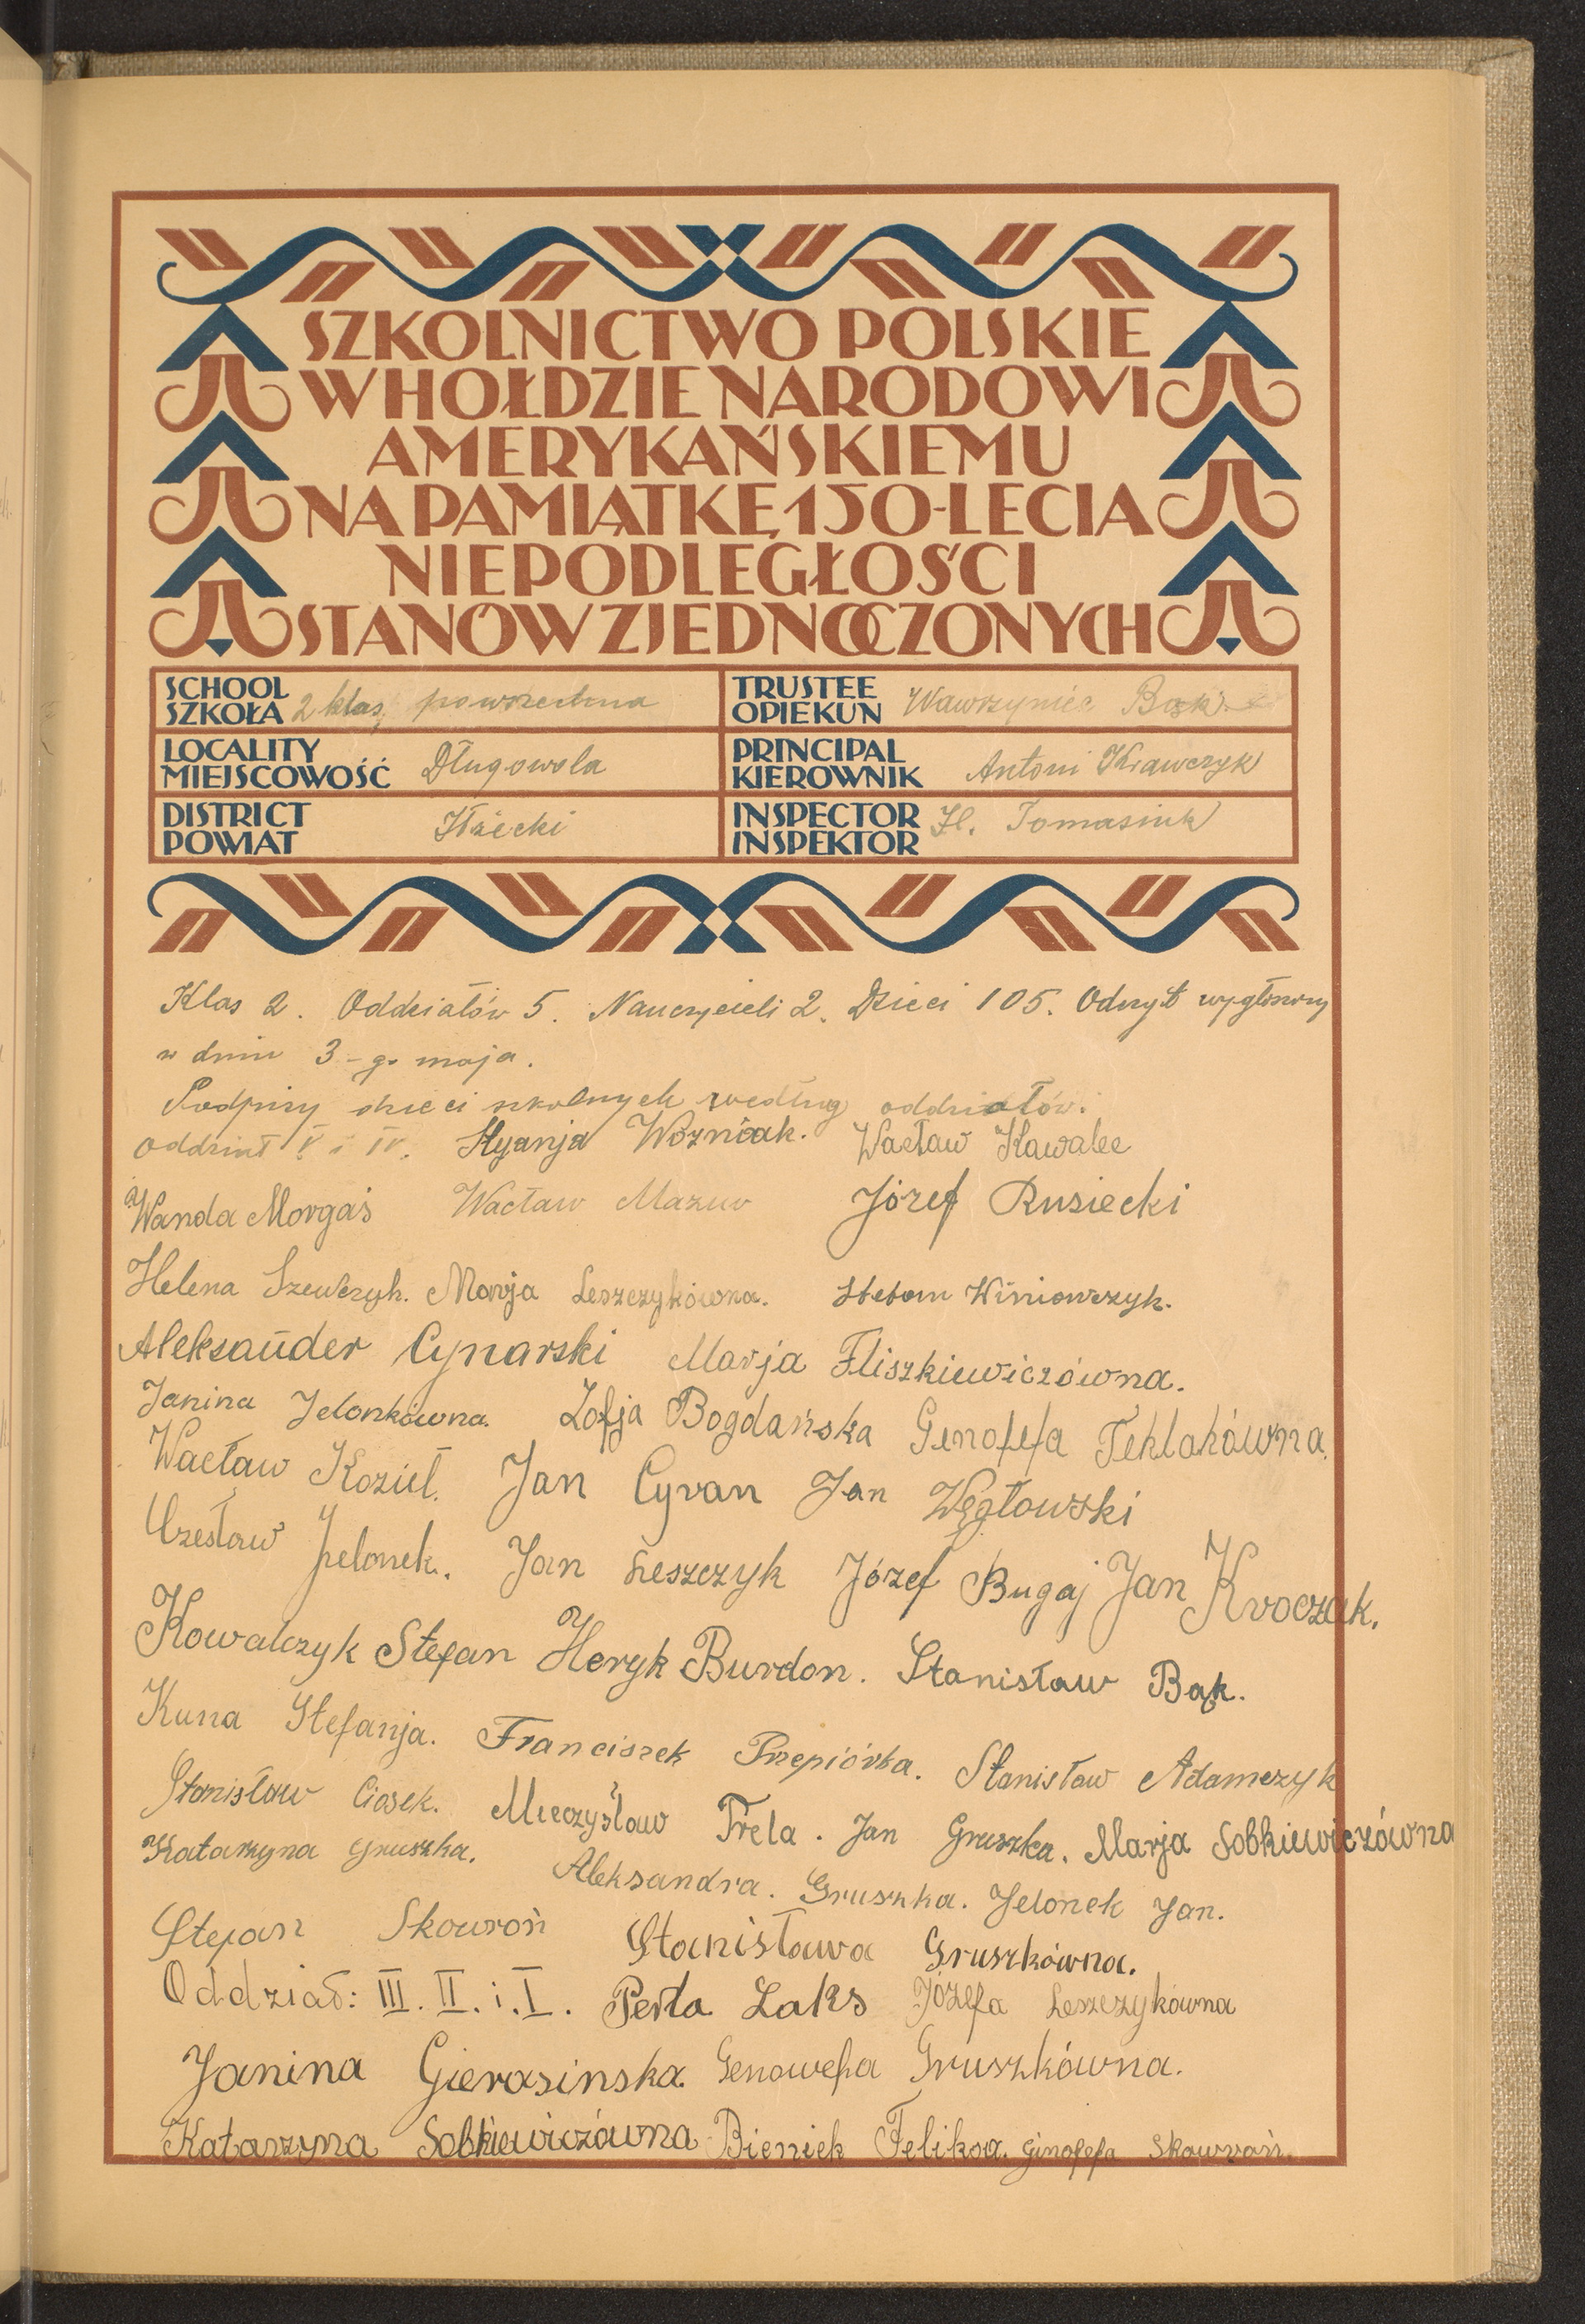 SZKOLNICTWO POLSKIE
W HOŁDZIE NARODOWI
AMERYKAŃSKIEMU
NA PAMIĄTKĘ 150-LECIA
NIEPODLEGŁOŚCI
STANÓW ZJEDNOCZONYCH
SCHOOL SZKOŁA 2 klas, powszechna
TRUSTEE OPIEKUN Wawrzyniec Bąk
LOCALITY MIEJSCOWOŚĆ Długowola
PRINCIPAL KIEROWNIK Antoni Krawczyk
DISTRICT POWIAT Iłżecki
INSPECTOR INSPEKTOR H. Tomasiuk
Klas 2. Oddziałów 5. Nauczycieli 2. Dzieci 105. Odczyt wygłoszony
w dniu 3-go maja.
Podpisy dzieci szkolnych według oddziałów:
Oddział V i IV. Woźniak. Wacław Kawalec
Wanda Morgaś Wacław Mazur Józef Rusiecki
Helena Szewczyk. Marja Leszczykówna. Winiowrzyk.
Aleksander Cynarski Marja Fliszkiewiczówna.
Janina Jelonkówna. Zofja Bogdańska Genofefa Teklakówna.
Wacław Kozieł. Jan Cyran Jan Węgłowski
Czesław Jelonek. Jan Leszczyk Józef Bugaj Jan Kroczak.
Kowalczyk Stefan Heryk Burdon. Stanisław Bąk.
Kuna Stefanja. Franciszek Przepiórka. Stanisław Adamczyk
Stanisław Ciosek. Mieczysław Trela. Jan Gruszka. Marja Sobkiewiczówna
Katarzyna Gruszka. Aleksandra. Gruszka. Jelonek Jan.
Stefan Skowroń Stanisława Gruszkówna.
Oddział: III. II. i. I. Perla Laks Józefa Leszczykówna
Janina Gierasinska Genowefa Gruszkówna.
Katarzyna Sobkiewiczówna Bieniek Feliksa. Ginofefa Skowroń.